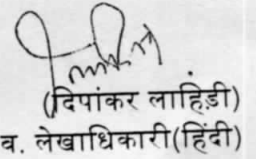 (दिपांकर लाहिड़ी)
व. लेखाधिकारी(हिंदी)